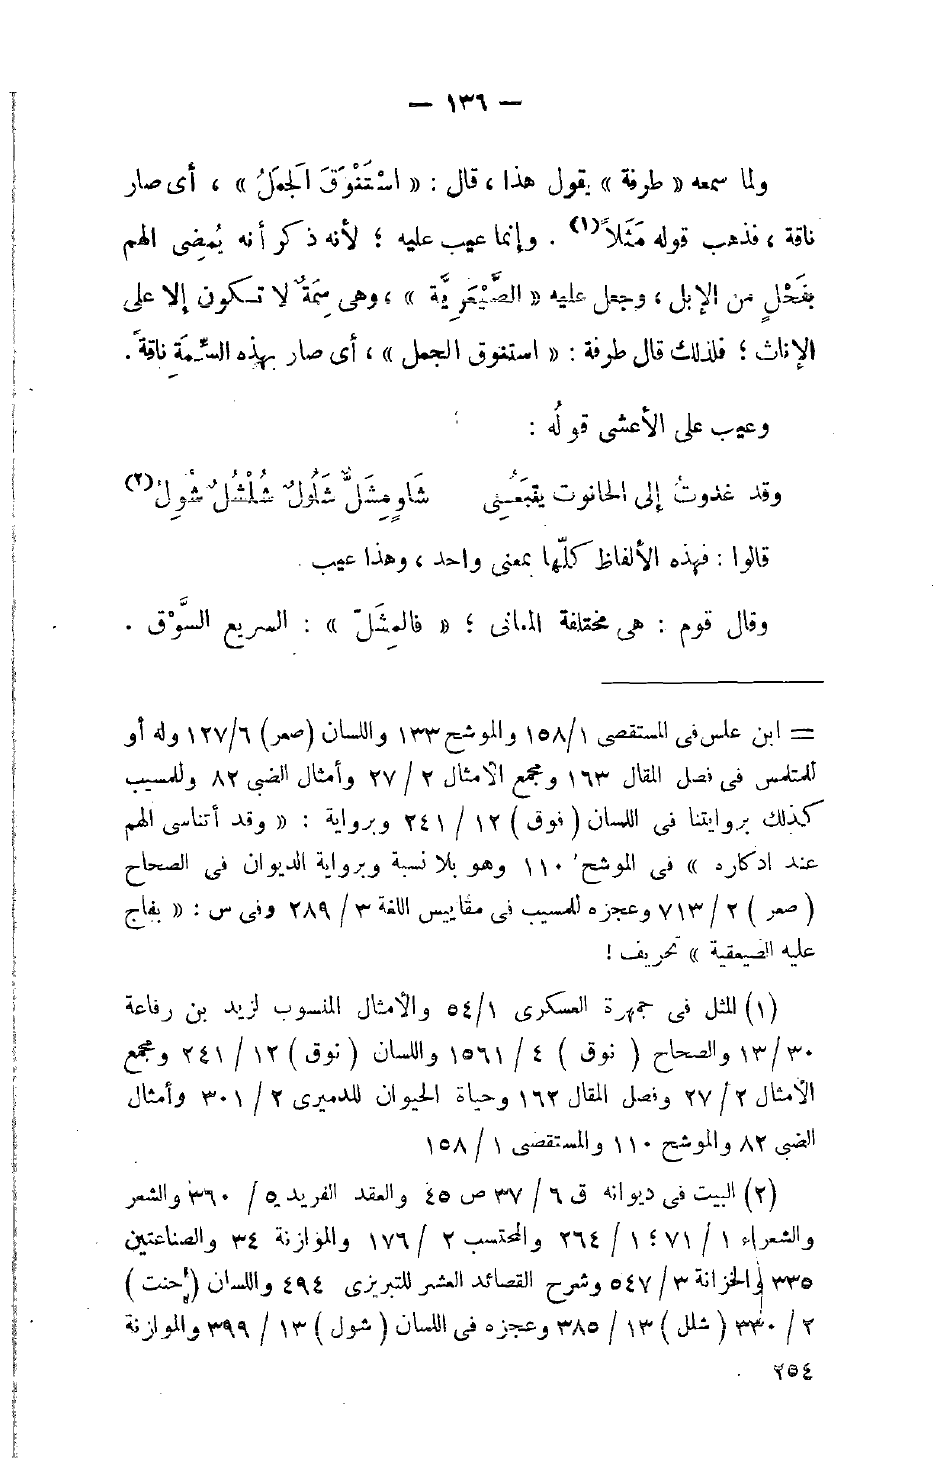 — ١٣٦ —
ولما سمعه « طرفة » يقول هذا ، قال : « اسْتَنْوَقَ الْجَمَلُ » ، أى صار
ناقة ، فذهب قوله مَثَلاً(١) . وإنما عيب عليه ؛ لأنه ذكر أنه يُمضِى الهم
بفَحْلٍ من الإبل ، وجعل عليه « الصَّيْعَرِيَّة » ، وهى سِمَةٌ لا تكون إلا على
الإناث ؛ فلذلك قال طرفة : « استنوق الجمل » ، أى صار بهذه السِّمَةِ ناقةً .
وعيب على الأعشى قولُه :
وقد غدوتُ إلى الحانوت يتبَعُنِى شَاوٍ مِشَلٌّ شَلُولٌ شُلْشُلٌ شَوِلُ(٢)
قالوا : فهذه الألفاظ كلّها بمعنى واحد ، وهذا عيب .
وقال قوم : هى مختلفة المعانى ؛ « فالمِشَلّ » : السريع السَّوْق .
= ابن علس فى المستقصى ١/١٥٨ والموشح ١٣٣ واللسان (صعر) ٦/١٢٧ وله أو
للمتلمس فى فصل المقال ١٦٣ ومجمع الأمثال ٢ / ٢٧ وأمثال الضبى ٨٢ وللمسيب
كذلك بروايتنا فى اللسان ( نوق ) ١٢ / ٢٤١ وبرواية : « وقد أتناسى الهم
عند ادكاره » فى الموشح ١١٠ وهو بلا نسبة وبرواية الديوان فى الصحاح
( صعر ) ٢ / ٧١٣ وعجزه للمسيب فى مقاييس اللغة ٣ / ٢٨٩ وفى س : « بفاج
عليه الصيعقية » تحريف !
(١) المثل فى جمهرة العسكرى ١/٥٤ والأمثال المنسوب لزيد بن رفاعة
١٣/٣٠ والصحاح ( نوق ) ٤ / ١٥٦١ واللسان ( نوق ) ١٢ / ٢٤١ ومجمع
الأمثال ٢ / ٢٧ وفصل المقال ١٦٢ وحياة الحيوان للدميرى ٢ / ٣٠١ وأمثال
الضبى ٨٢ والموشح ١١٠ والمستقصى ١ / ١٥٨
(٢) البيت فى ديوانه ق ٦ / ٣٧ ص ٤٥ والعقد الفريد ٥ / ٣٦٠ والشعر
والشعراء ١ / ٧١ ؛ ١ / ٢٦٤ والمحتسب ٢ / ١٧٦ والموازنة ٣٤ والصناعتين
٣٣٥ والخزانة ٣ / ٥٤٧ وشرح القصائد العشر للتبريزى ٤٩٤ واللسان ( حنت )
٢ / ٣٣٠ ( شلل ) ١٣ / ٣٨٥ وعجزه فى اللسان ( شول ) ١٣ / ٣٩٩ والموازنة
٢٥٤